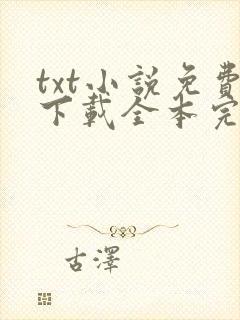 txt小說免費
下載全本完
古澤